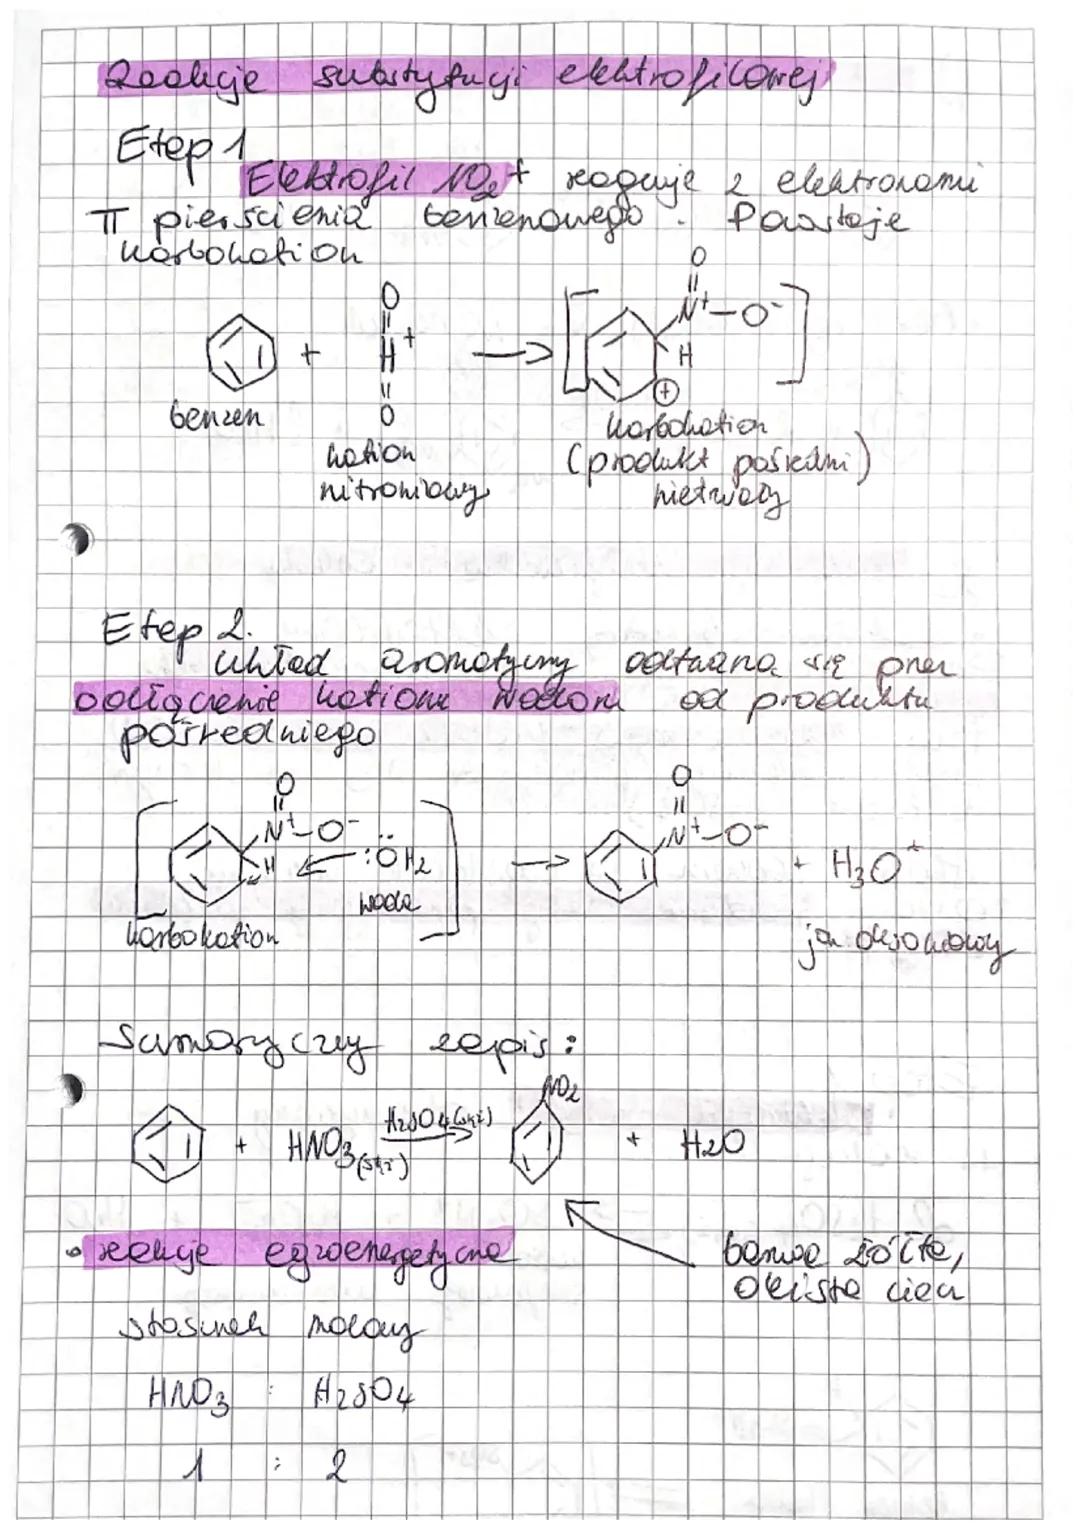 Reakcje substytucji elektrofilowej
Etap 1
Elektrofil NO2+ reaguje z elektronami
π pierścienia benzenowego. Powstaje
karbokation
O
O
N+-O-
H+
+
H
O
+
benzen
kation
nitroniowy
karbokation
(produkt pośredni)
nietrwały
Etap 2.
układ aromatyczny odtwarza się przez
odłączenie kationu wodoru od produktu
pośredniego
O
O
N+-O-
H
:ÖH2
N+-O-
+ H3O+
woda
karbokation
jon oksoniowy
Sumaryczny zapis:
NO2
+ HNO3(stęż) H2SO4(stęż) + H2O
• reakcje egzoenergetyczne
barwa żółta,
oleista ciecz
stosunek molowy
HNO3 : H2SO4
1 : 2